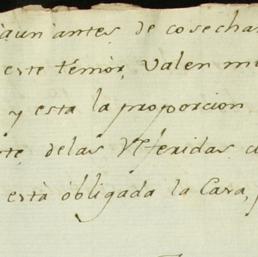 aun antes de cosechar
este témor, valen mu
y esta la proporcion
te delas Referidas c
está obligada la Casa,